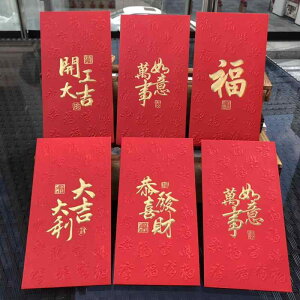 開工大吉
萬事如意
福
大吉大利
恭喜發財
萬事如意